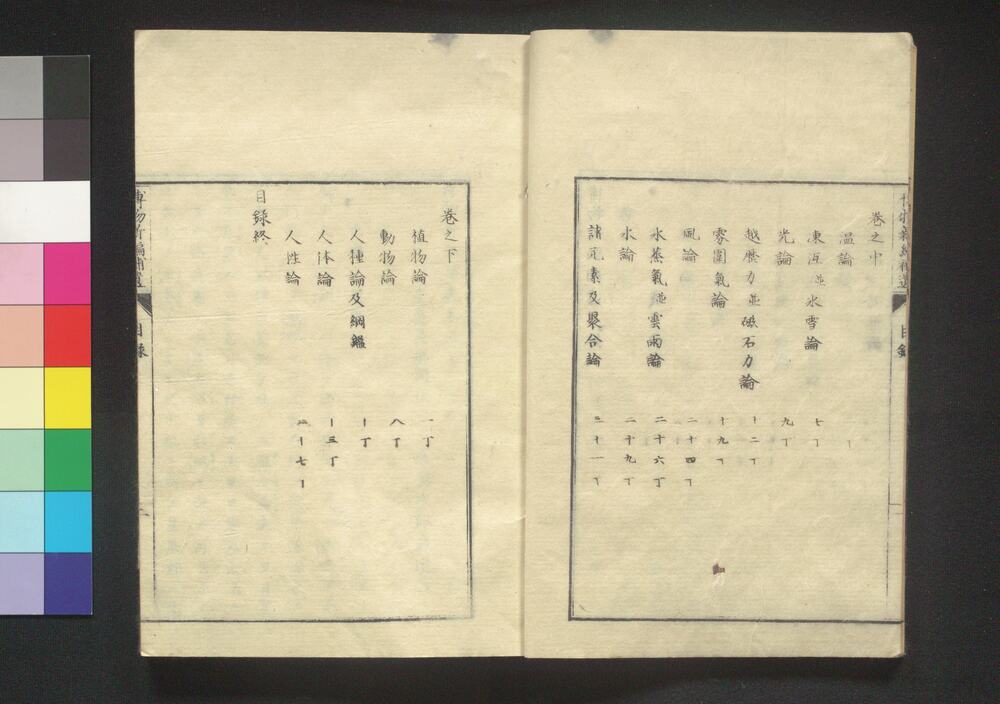 巻之中
温論
凍冱並氷雪論 七丁
光論 九丁
越歴力並磁石力論 十二丁
雰圍氣論 十九丁
風論 二十四丁
水蒸氣並雲雨論 二十六丁
水論 二十九丁
諸元素及聚合論 三十一丁
目録
巻之下
植物論 一丁
動物論 八丁
人種論及綱鑑 十丁
人体論 十三丁
人性論 十七丁
目録終
博物新編補遺
目録